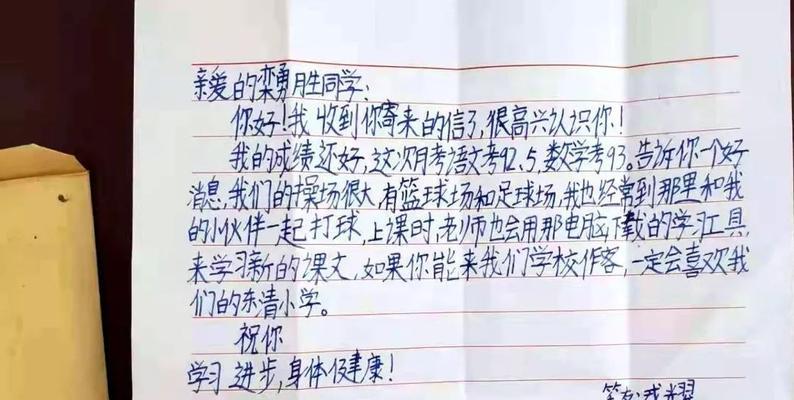 亲爱的栾勇胜同学：
你好！我收到你寄来的信了，很高兴认识你！
我的成绩还好，这次月考语文考92.5，数学考93。告诉你一个好
消息，我们的操场很大，有篮球场和足球场，我也经常到那里和我
的小伙伴一起打球，上课时，老师也会用那电脑下载的学习工具，
来学习新的课文，如果你能来我们学校作客，一定会喜欢我
们的东清小学。
祝你
学习进步，身体健康！
笔友：